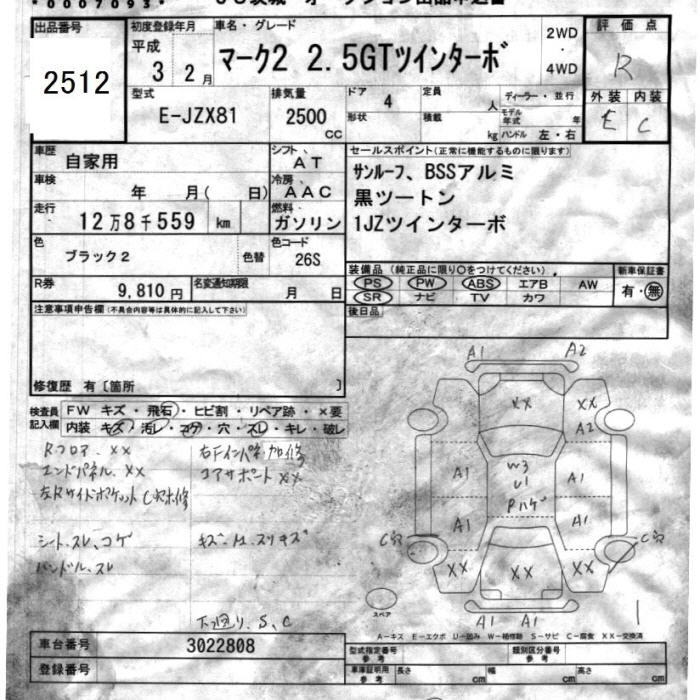 0007093
出品番号
2512
初度登録年月
平成
3 2月
車名・グレード
マーク2 2.5GTツインターボ
2WD
・
4WD
評価点
R
外装 内装
E C
型式
E-JZX81
排気量
2500
cc
ドア
4
定員
人
ディーラー・並行
形状
積載
kg
モデル年式
年
ハンドル 左・右
車歴
自家用
シフト
AT
車検
年 月( 日)
冷房
AAC
走行
12万8千559 km
燃料
ガソリン
色
ブラック2
色替
色コード
26S
R券
9,810円
名変通知期限
月 日
セールスポイント(正常に機能するものに限ります)
サンルーフ、BSSアルミ
黒ツートン
1JZツインターボ
装備品(純正品に限り○をつけてください)
PS PW ABS エアB AW
SR ナビ TV カワ
新車保証書
有・無
後日品
注意事項申告欄(不具合内容等は具体的に記入して下さい)
修復歴 有〔箇所 〕
検査員記入欄
FW キズ・飛石・ヒビ割・リペア跡・×要
内装 キズ・汚レ・コゲ・穴・スレ・キレ・破レ
Rフロア、XX
エンドパネル、XX
コアサポートXX
シート、スレ、コゲ
ハンドル、スレ
下回り、S、C
A1
A2
XX
XX
A2
A1
W3
U1
A1
A1
A1
XX
XX
XX
A1
A1
スペア
1
A-キズ E-エクボ U-凹み W-補修跡 S-サビ C-腐食 XX-交換済
車台番号
3022808
登録番号
型式指定番号
参考
類別区分番号
参考
車庫証明用
参考
長さ
cm
幅
cm
高さ
cm